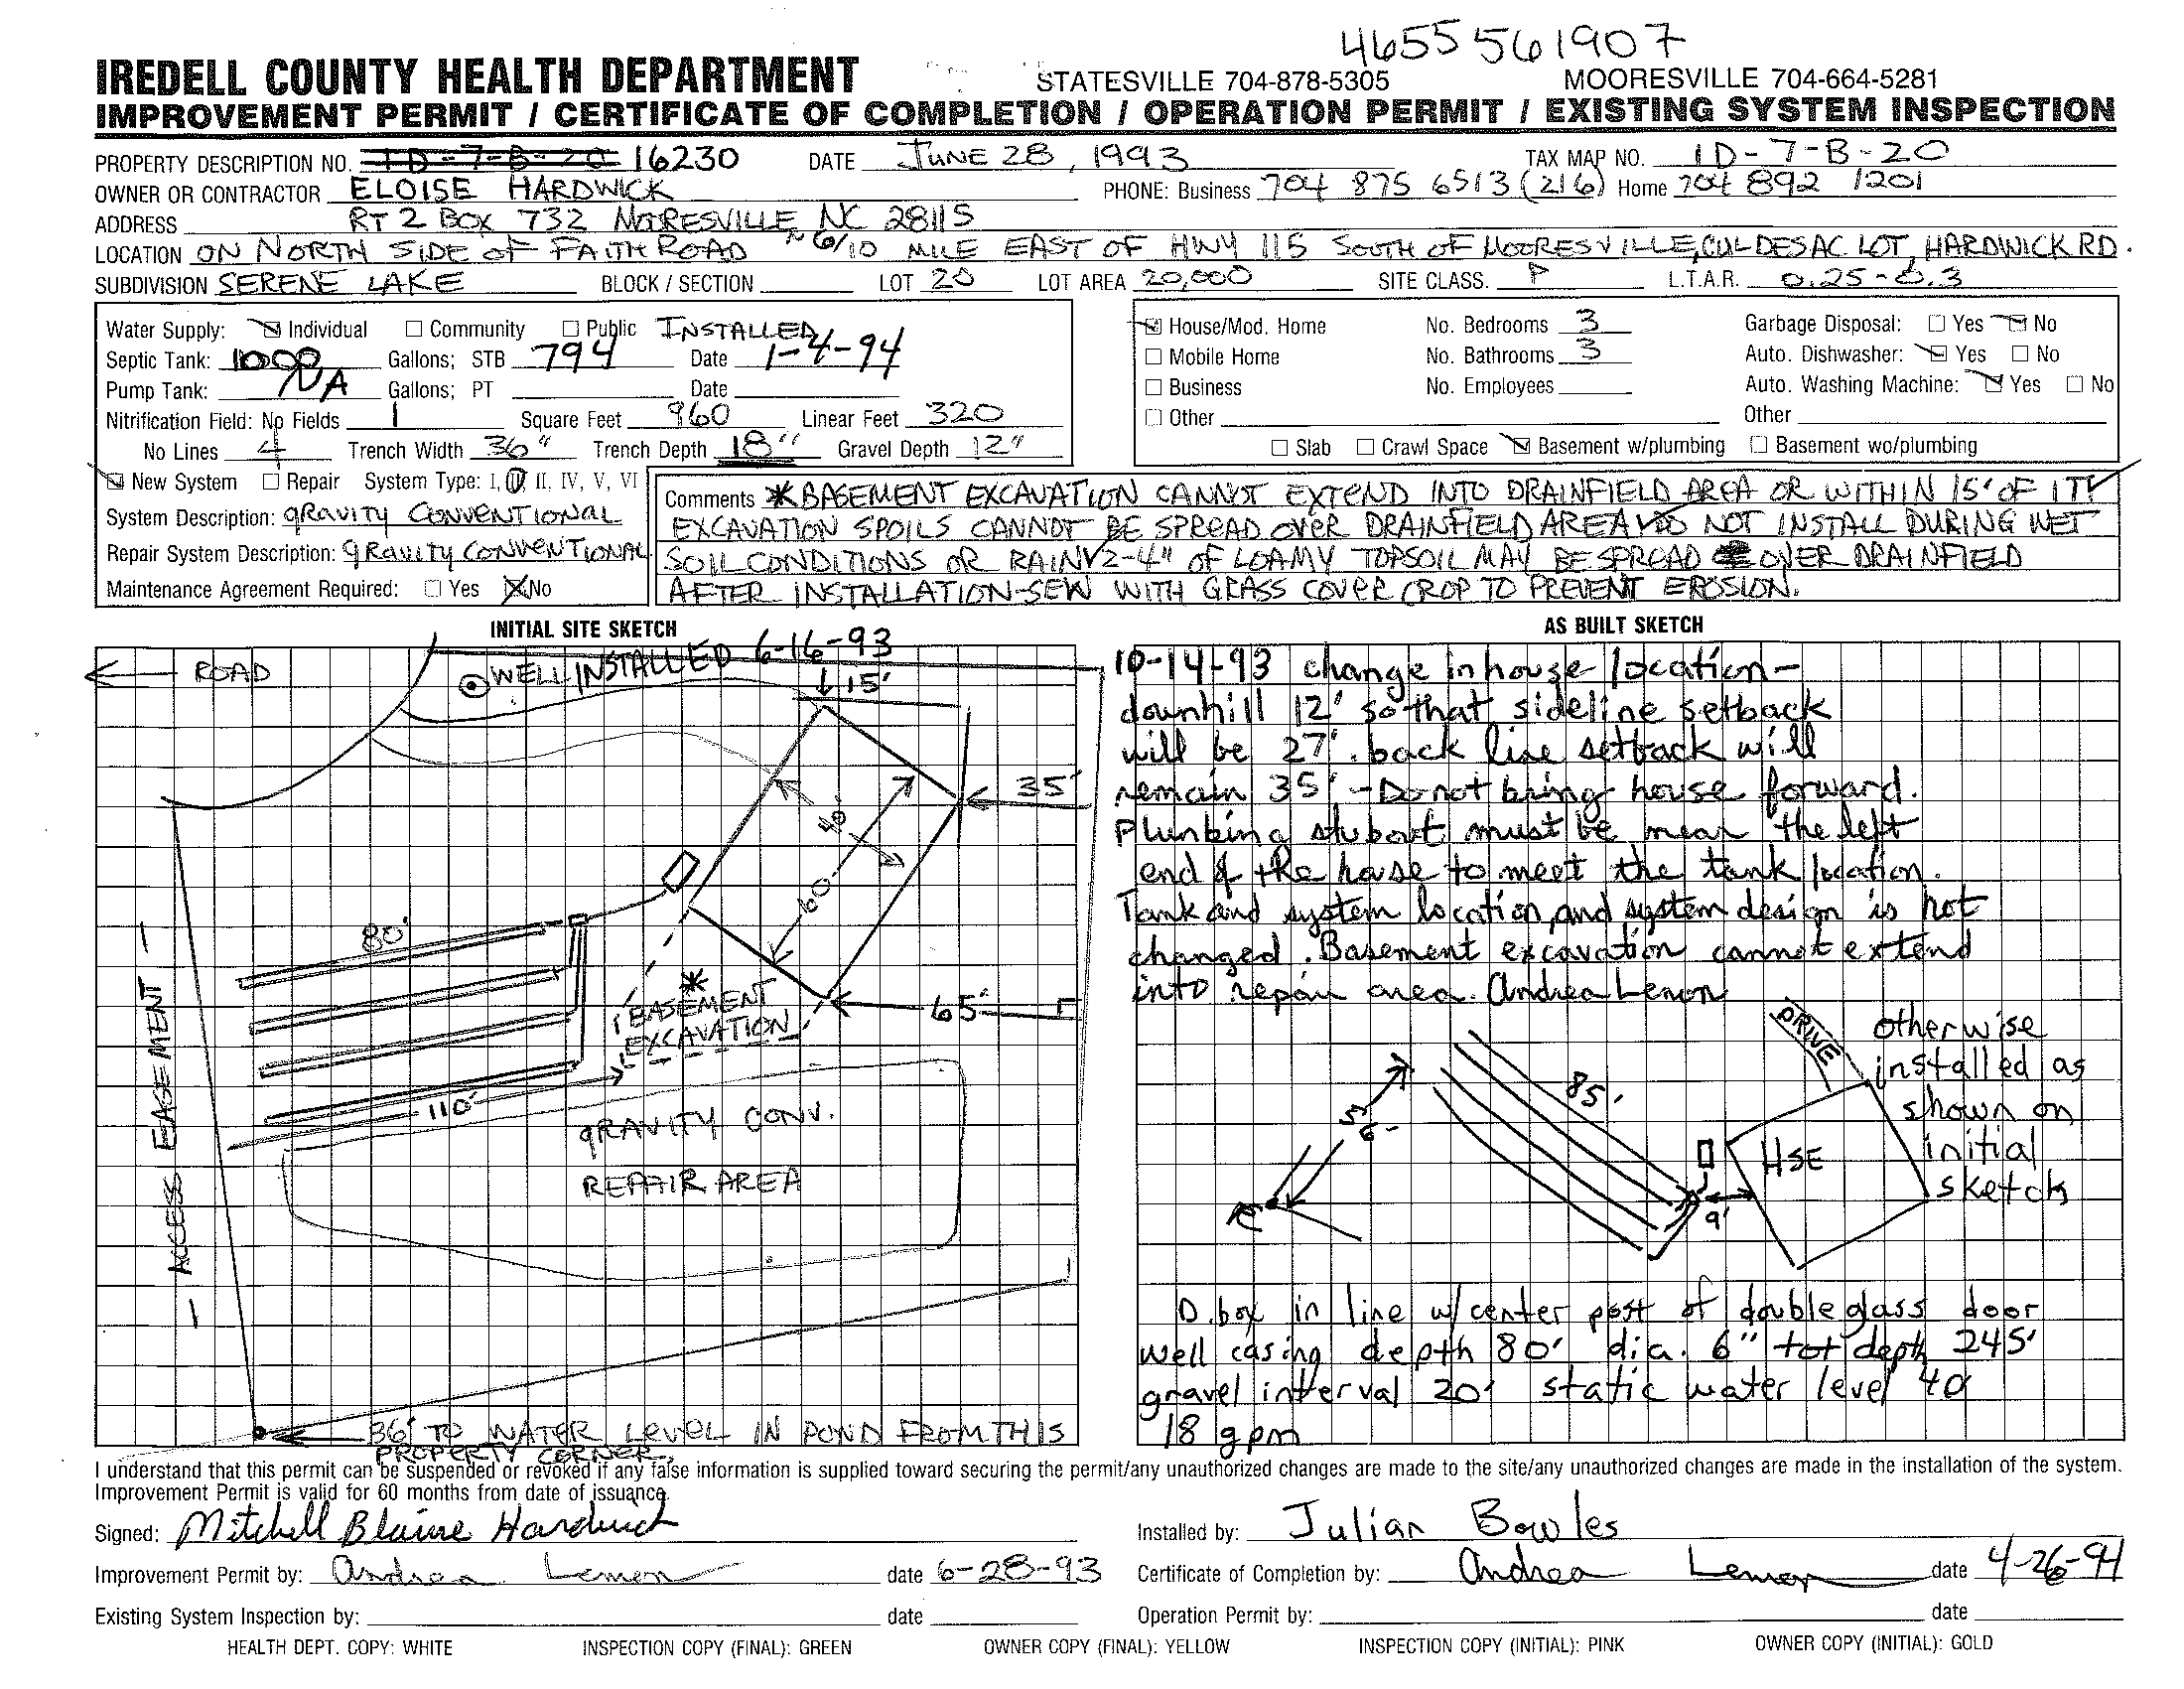 4655561907
IREDELL COUNTY HEALTH DEPARTMENT STATESVILLE 704-878-5305 MOORESVILLE 704-664-5281
IMPROVEMENT PERMIT / CERTIFICATE OF COMPLETION / OPERATION PERMIT / EXISTING SYSTEM INSPECTION
PROPERTY DESCRIPTION NO. 1D-7-B-20 16230 DATE JUNE 28, 1993 TAX MAP NO. 1D-7-B-20
OWNER OR CONTRACTOR ELOISE HARDWICK PHONE: Business 704 875 6513 (216) Home 704 892 1201
ADDRESS RT 2 BOX 732 MOORESVILLE, NC 28115
LOCATION ON NORTH SIDE OF FAITH ROAD ~ 6/10 MILE EAST OF HWY 115 SOUTH OF MOORESVILLE, CUL DE SAC LOT, HARDWICK RD.
SUBDIVISION SERENE LAKE BLOCK / SECTION LOT 20 LOT AREA 20,000 SITE CLASS. P L.T.A.R. 0.25-0.3
Water Supply: Individual Community Public INSTALLED
Septic Tank: 1000 Gallons; STB 794 Date 1-4-94
Pump Tank: NA Gallons; PT Date
Nitrification Field: No Fields 1 Square Feet 960 Linear Feet 320
No Lines 4 Trench Width 36" Trench Depth 18" Gravel Depth 12"
House/Mod. Home No. Bedrooms 3 Garbage Disposal: Yes No
Mobile Home No. Bathrooms 3 Auto. Dishwasher: Yes No
Business No. Employees Auto. Washing Machine: Yes No
Other Other
Slab Crawl Space Basement w/plumbing Basement wo/plumbing
New System Repair System Type: I, II, III, IV, V, VI
System Description: GRAVITY CONVENTIONAL
Repair System Description: GRAVITY CONVENTIONAL
Maintenance Agreement Required: Yes No
Comments * BASEMENT EXCAVATION CANNOT EXTEND INTO DRAINFIELD AREA OR WITHIN 15' OF IT
EXCAVATION SPOILS CANNOT BE SPREAD OVER DRAINFIELD AREA DO NOT INSTALL DURING WET
SOIL CONDITIONS OR RAIN 2-4" OF LOAMY TOPSOIL MAY BE SPREAD OVER DRAINFIELD
AFTER INSTALLATION-SEW WITH GRASS COVER CROP TO PREVENT EROSION.
INITIAL SITE SKETCH
ROAD
WELL INSTALLED 6-16-93
15'
35'
40'
60'
80'
* BASEMENT
EXCAVATION
65'
110'
GRAVITY CONV.
REPAIR AREA
- ACCESS EASEMENT -
36' TO WATER LEVEL IN POND FROM THIS
PROPERTY CORNER.
AS BUILT SKETCH
10-14-93 change in house location -
downhill 12' so that sideline setback
will be 27'. back line setback will
remain 35' - Do not bring house forward.
Plumbing stubout must be near the left
end of the house to meet the tank location.
Tank and system location, and system design is not
changed. Basement excavation cannot extend
into repair area. Andrea Lemon
DRIVE
otherwise
installed as
shown on
initial
sketch
85'
HSE
9'
D. box in line w/ center post of double glass door
well casing depth 80' dia. 6" tot depth 245'
gravel interval 20' static water level 40'
18 gpm
I understand that this permit can be suspended or revoked if any false information is supplied toward securing the permit/any unauthorized changes are made to the site/any unauthorized changes are made in the installation of the system.
Improvement Permit is valid for 60 months from date of issuance.
Signed: Mitchell Blaine Hardwick Installed by: Julian Bowles
Improvement Permit by: Andrea Lemon date 6-28-93 Certificate of Completion by: Andrea Lemon date 4-26-94
Existing System Inspection by: date Operation Permit by: date
HEALTH DEPT. COPY: WHITE INSPECTION COPY (FINAL): GREEN OWNER COPY (FINAL): YELLOW INSPECTION COPY (INITIAL): PINK OWNER COPY (INITIAL): GOLD